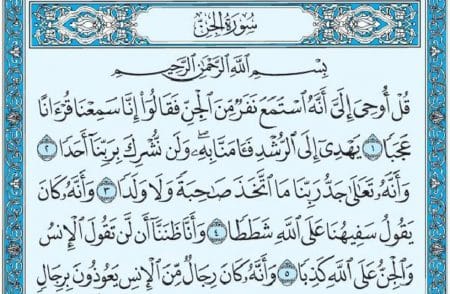 سُورَةُ الجِنِّ
بِسْمِ اللَّهِ الرَّحْمَٰنِ الرَّحِيمِ
قُلْ أُوحِيَ إِلَيَّ أَنَّهُ ٱسْتَمَعَ نَفَرٌ مِّنَ ٱلْجِنِّ فَقَالُوٓا۟ إِنَّا سَمِعْنَا قُرْءَانًا
عَجَبًا ١ يَهْدِىٓ إِلَى ٱلرُّشْدِ فَـَٔامَنَّا بِهِۦ ۖ وَلَن نُّشْرِكَ بِرَبِّنَآ أَحَدًا ٢
وَأَنَّهُۥ تَعَٰلَىٰ جَدُّ رَبِّنَا مَا ٱتَّخَذَ صَٰحِبَةً وَلَا وَلَدًا ٣ وَأَنَّهُۥ كَانَ
يَقُولُ سَفِيهُنَا عَلَى ٱللَّهِ شَطَطًا ٤ وَأَنَّا ظَنَنَّآ أَن لَّن تَقُولَ ٱلْإِنسُ
وَٱلْجِنُّ عَلَى ٱللَّهِ كَذِبًا ٥ وَأَنَّهُۥ كَانَ رِجَالٌ مِّنَ ٱلْإِنسِ يَعُوذُونَ بِرِجَالٍ